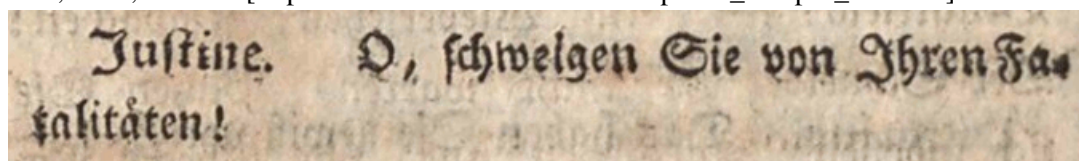 Justine. O, schweigen Sie von Ihren Fa-
talitäten!